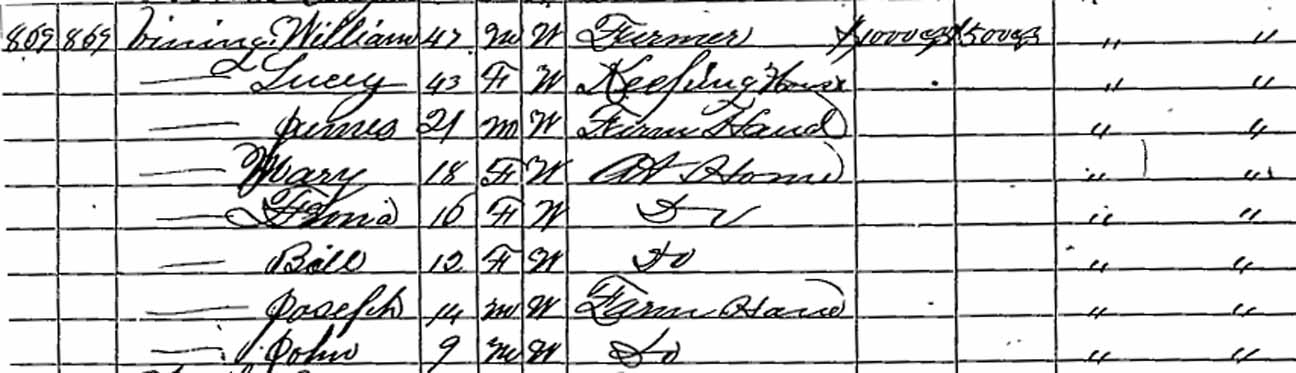 869 869 Vining William 47 M W Farmer $1000 $500 " "
— Lucey 43 F W Keeping House " "
— James 21 M W Farm Hand " "
— Mary 18 F W At Home " "
— 16 F W Do " "
— Bell 12 F W Do " "
— Joseph 14 M W Farm Hand " "
— John 9 M W Do " "